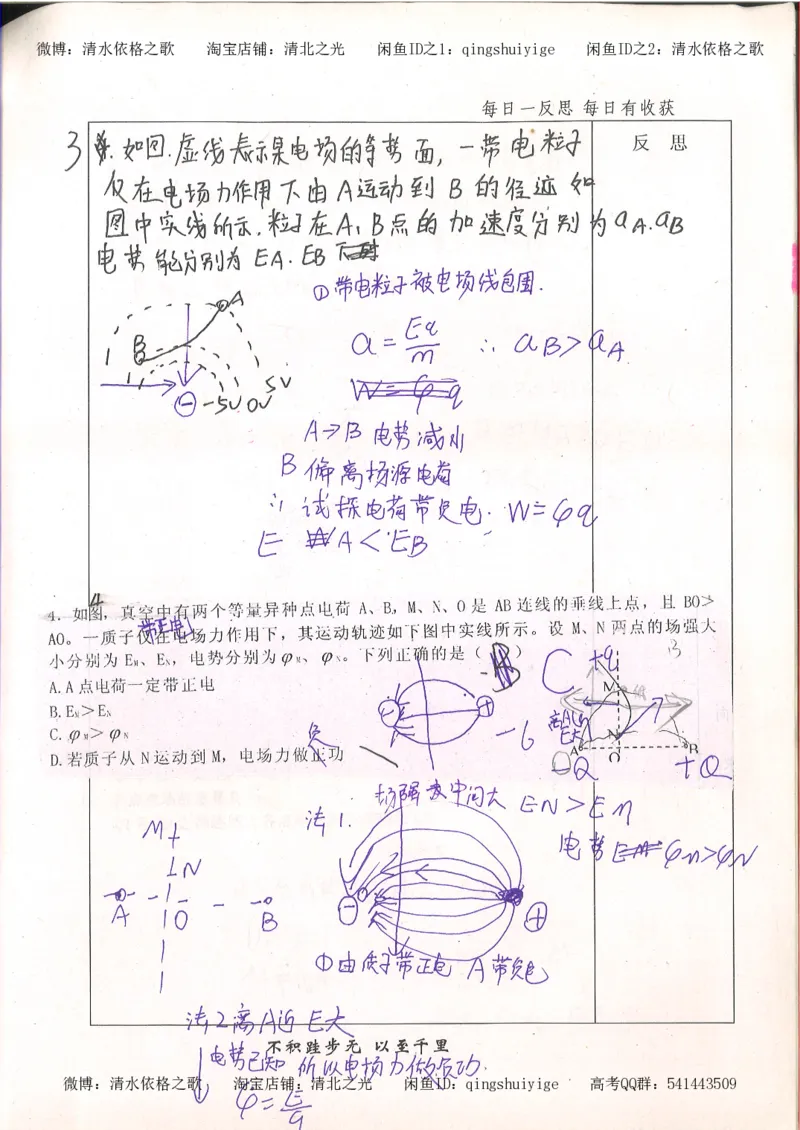 微博：清水依格之歌 淘宝店铺：清北之光 闲鱼ID之1：qingshuiyige 闲鱼ID之2：清水依格之歌
每日一反思 每日有收获
反 思
3. 如图.虚线表示某电场的等势面，一带电粒子
仅在电场力作用下由A运动到B的径迹如
图中实线所示.粒子在A、B点的加速度分别为aA.aB
电势能分别为EA.EB
①带电粒子被电场线包围.
A
B
5V
0V
-5V
⊖
a=Eq/m ∴ aB>aA
W=φq
A→B 电势减小
B 偏离场源电荷
∴ 试探电荷带负电. W=φq
E A<EB
4
4. 如图，真空中有两个等量异种点电荷 A、B，M、N、O 是 AB 连线的垂线上点，且 BO>
AO。一质子仅在电场力作用下，其运动轨迹如下图中实线所示。设 M、N 两点的场强大
带正电
小分别为 EM、EN，电势分别为φM、φN。下列正确的是（ ）
B C +q
A.A 点电荷一定带正电
B.EM>EN
C.φM>φN
D.若质子从 N 运动到 M，电场力做正功
负
M
N
A O B
-Q +Q
场强 中间大 EN>EM
法1.
电势 φM>φN
M
N
A O B
⊖ ⊕
①由质子带正电 A带负电
法2离A近 E大
不积跬步无 以至千里
电势已知 所以电场力做负功.
微博：清水依格之歌 淘宝店铺：清北之光 闲鱼ID：qingshuiyige 高考QQ群：541443509
φ=E/q